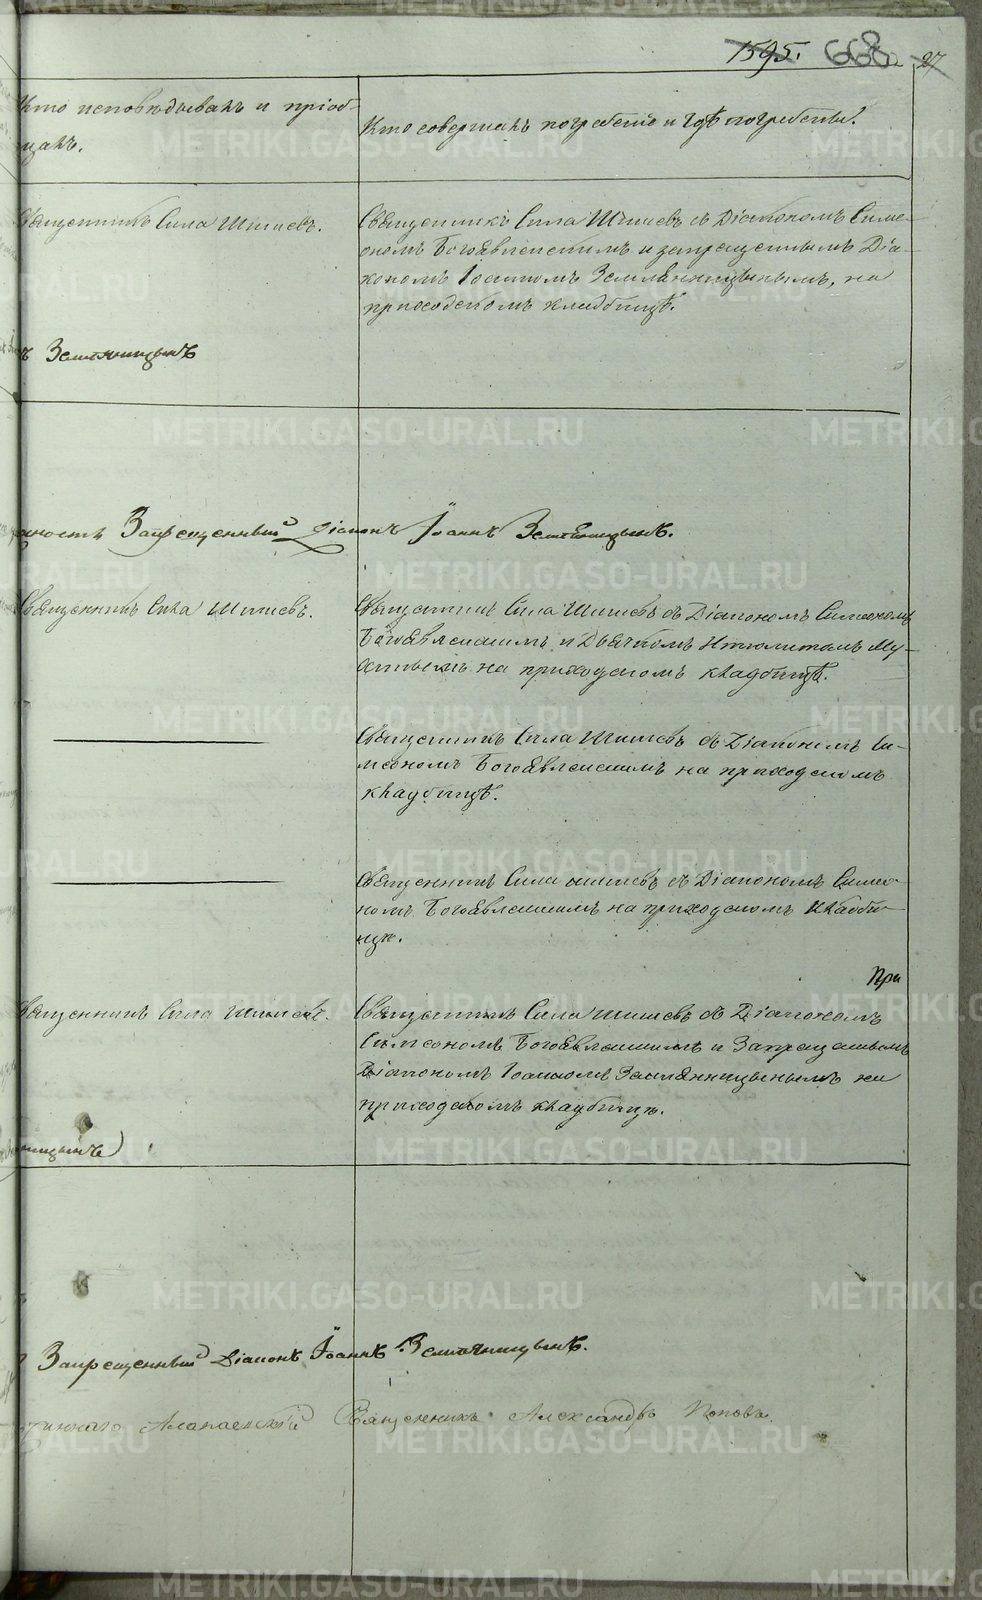 1595. 668 27
Кто исповѣдывалъ и пріоб-
щалъ.
Кто совершалъ погребеніе и гдѣ погребены?
Священникъ Сила Шишевъ.
Священникъ Сила Шишевъ съ Діакономъ Симе-
ономъ Богоявленскимъ и запрещеннымъ Діа-
кономъ Іоанномъ Земляницынымъ, на
приходскомъ кладбищѣ.
ъ Земляницынъ
Запрещенный Діаконъ Іоаннъ Земляницынъ.
Священникъ Сила Шишевъ.
Священникъ Сила Шишевъ съ Діакономъ Симеономъ
Богоявленскимъ и Дьячкомъ на приходскомъ кладбищѣ.
Священникъ Сила Шишевъ съ Діакономъ Си-
меономъ Богоявленскимъ на приходскомъ
кладбищѣ.
Священникъ Сила Шишевъ съ Діакономъ Симео-
номъ Богоявленскимъ на приходскомъ кладби-
щѣ.
При
Священникъ Сила Шишевъ.
Священникъ Сила Шишевъ съ Діакономъ
Симеономъ Богоявленскимъ и Запрещеннымъ
Діакономъ Іоанномъ Земляницынымъ на
приходскомъ кладбищѣ.
ницынъ
Запрещенный Діаконъ Іоаннъ Земляницынъ.
Алапаевскій Священникъ Александръ Поповъ.
METRIKI.GASO-URAL.RU